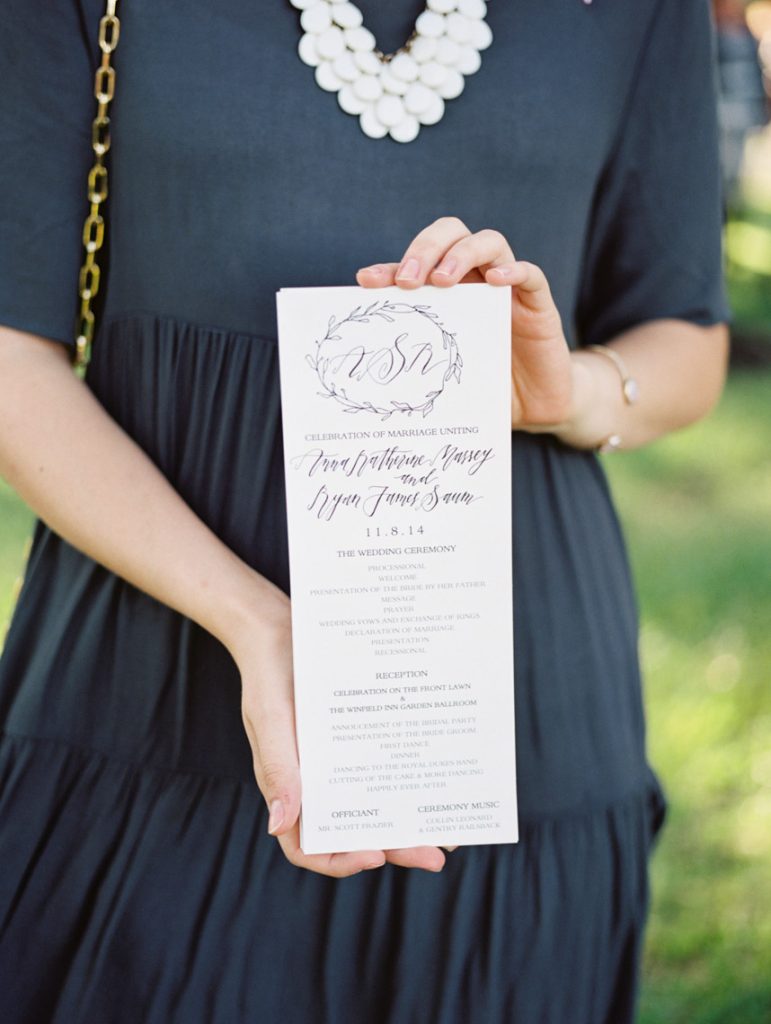 ASR
CELEBRATION OF MARRIAGE UNITING
Anna Katherine Massey
and
Ryan James Saum
11.8.14
THE WEDDING CEREMONY
PROCESSIONAL
WELCOME
PRESENTATION OF THE BRIDE BY HER FATHER
MESSAGE
PRAYER
WEDDING VOWS AND EXCHANGE OF RINGS
DECLARATION OF MARRIAGE
PRESENTATION
RECESSIONAL
RECEPTION
CELEBRATION ON THE FRONT LAWN
&
THE WINFIELD INN GARDEN BALLROOM
ANNOUCEMENT OF THE BRIDAL PARTY
PRESENTATION OF THE BRIDE GROOM
FIRST DANCE
DINNER
DANCING TO THE ROYAL DUKES BAND
CUTTING OF THE CAKE & MORE DANCING
HAPPILY EVER AFTER
OFFICIANT
MR. SCOTT FRAZIER
CEREMONY MUSIC
COLLIN LEONARD
& GENTRY RAILSBACK